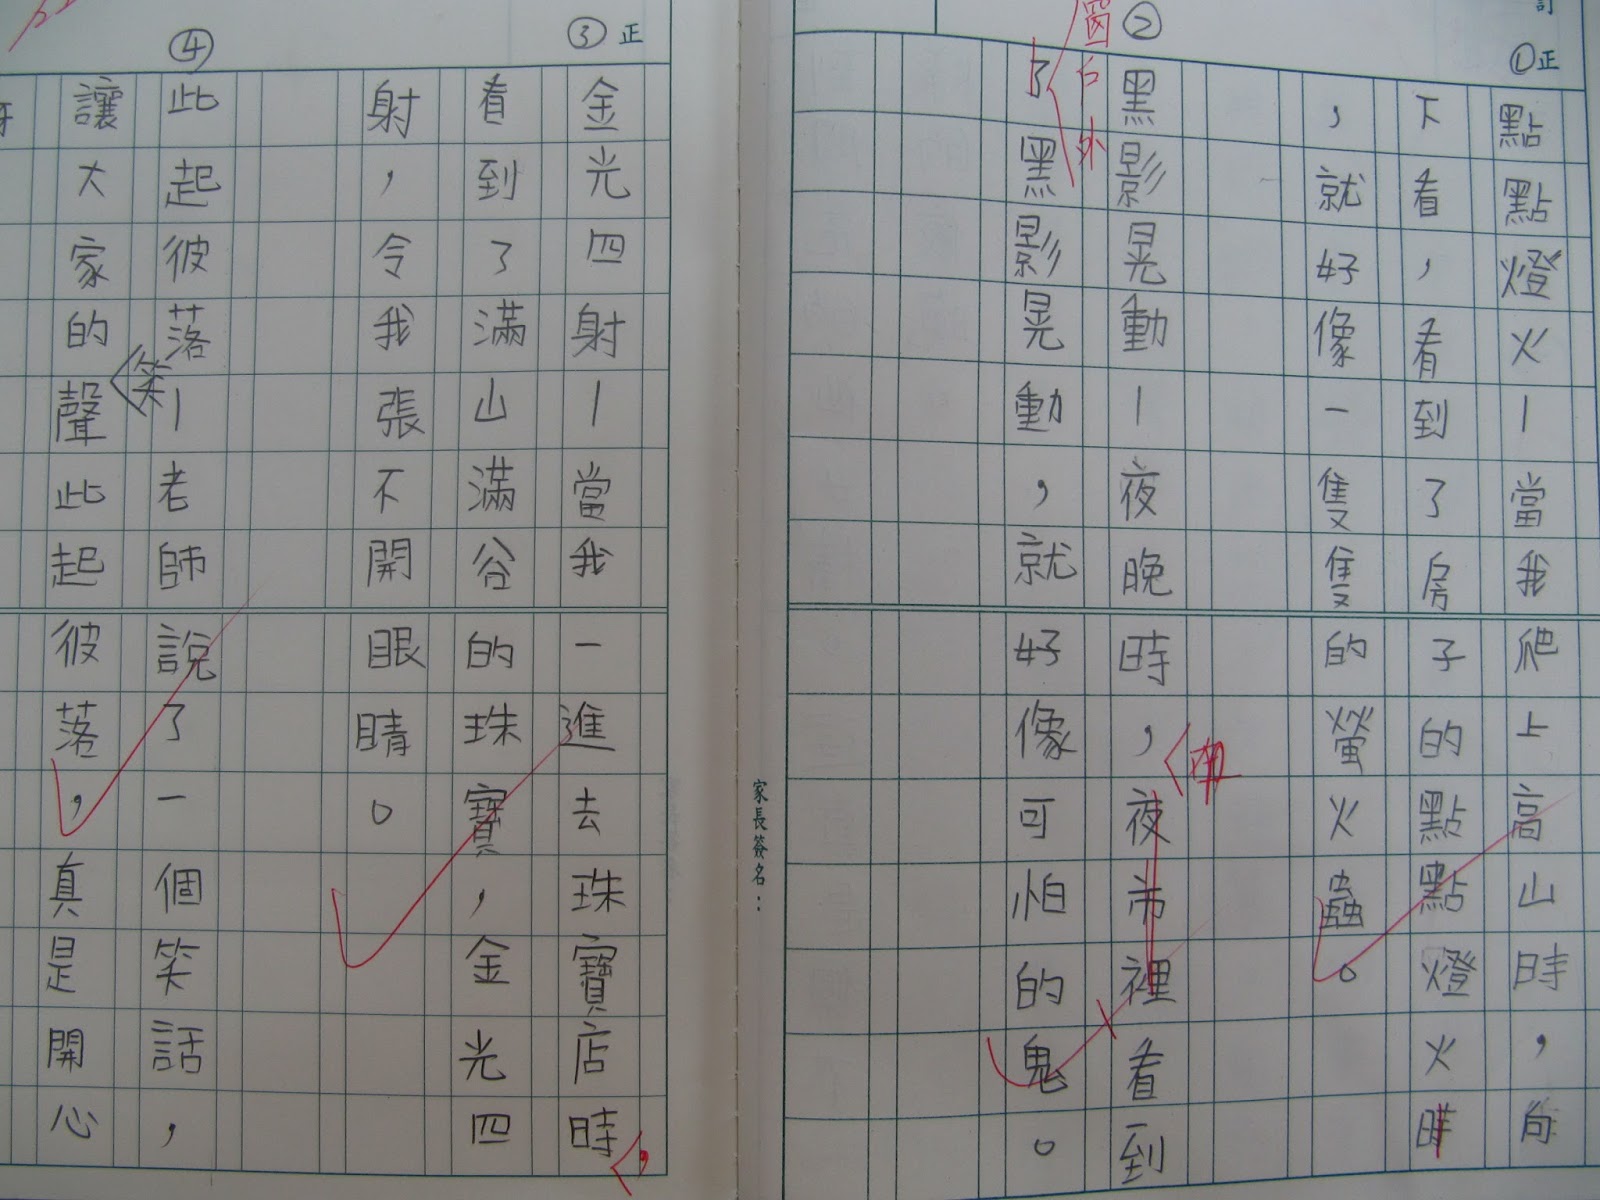 ①正
點點燈火—當我爬上高山時，向
下看，看到了房子的點點燈火時
，就好像一隻隻的螢火蟲。
②
黑影晃動—夜晚時，夜市裡看到
了黑影晃動，就好像可怕的鬼。
窗戶外
家長簽名：
③正
金光四射—當我一進去珠寶店時
，
看到了滿山滿谷的珠寶，金光四
射，令我張不開眼睛。
④
此起彼落—老師說了一個笑話，
讓大家的聲此起彼落，真是開心
笑